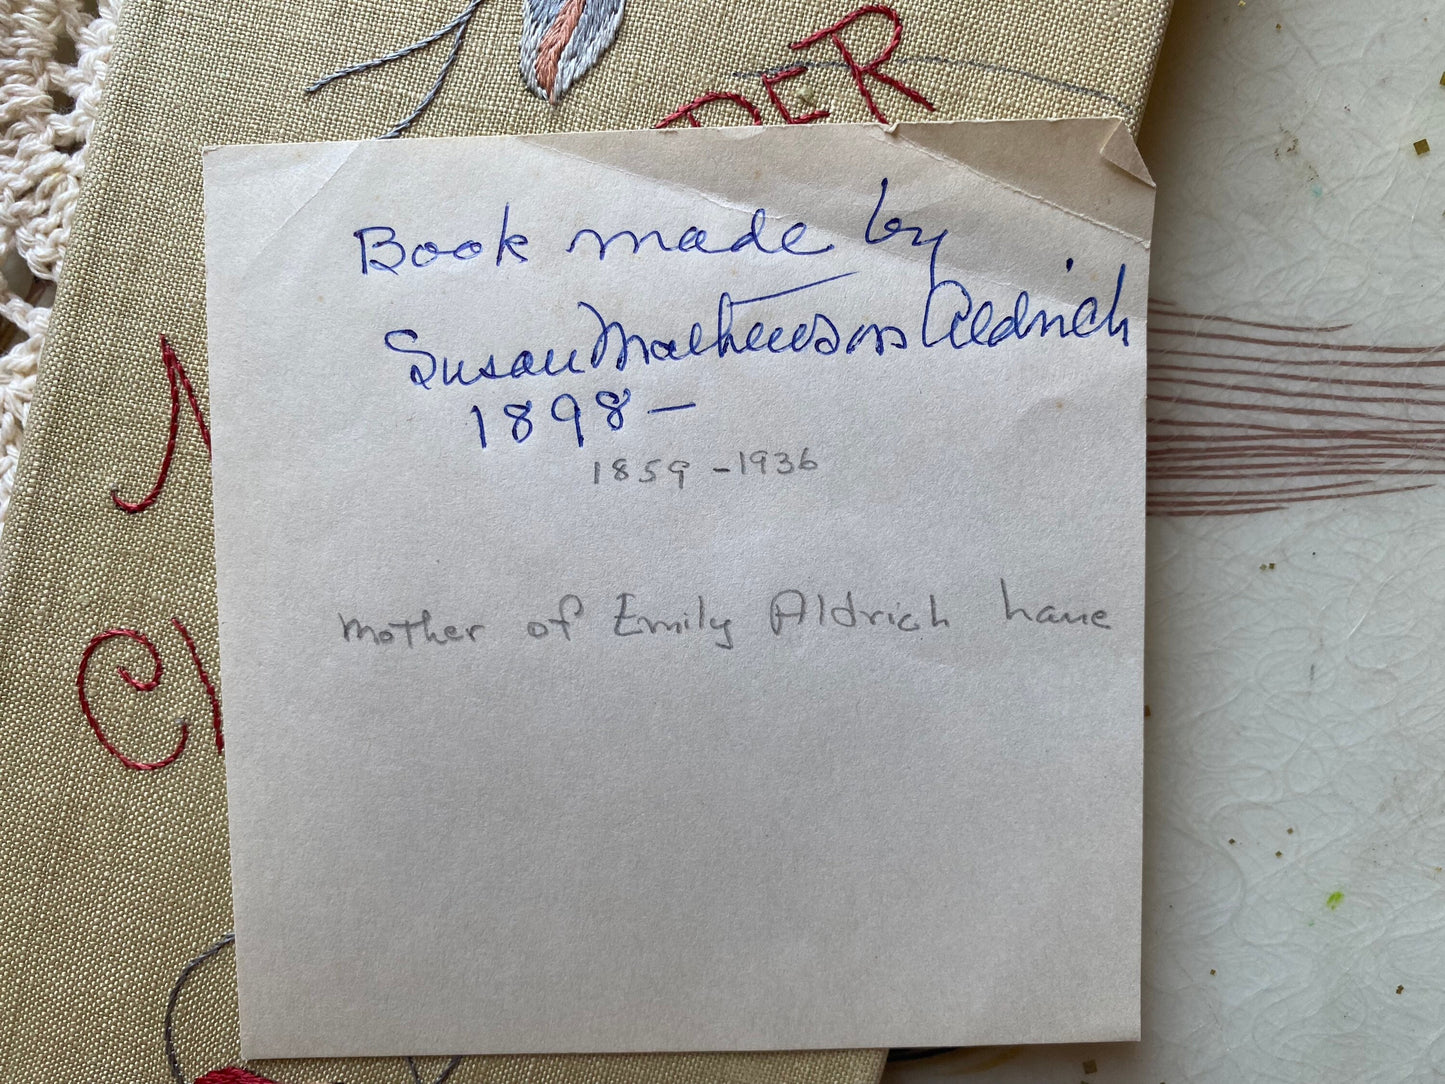 DER
Book made by
Susan Mathewson Aldrich
1898 –
1859 – 1936
mother of Emily Aldrich hane